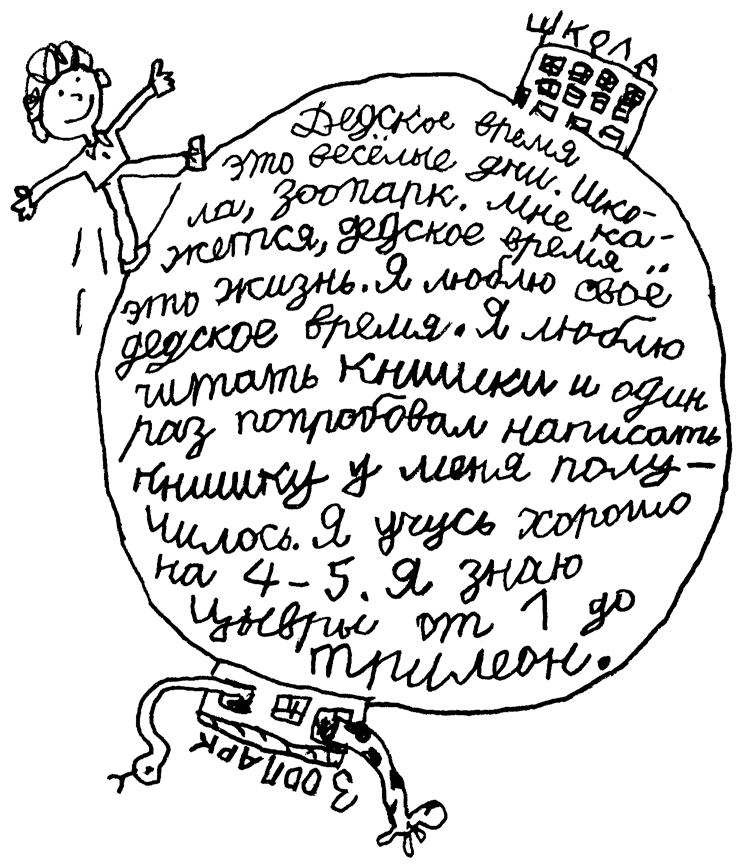 ШКОЛА
Дедское время
это весёлые дни. Шко-
ла, зоопарк. Мне ка-
жется, дедское время
это жизнь. Я люблю своё
дедское время. Я люблю
читать книшки и один
раз попробовал написать
книшку у меня полу-
чилось. Я учусь хорошо
на 4-5. Я знаю
цывры от 1 до
трилеон.
ЗООПАРК